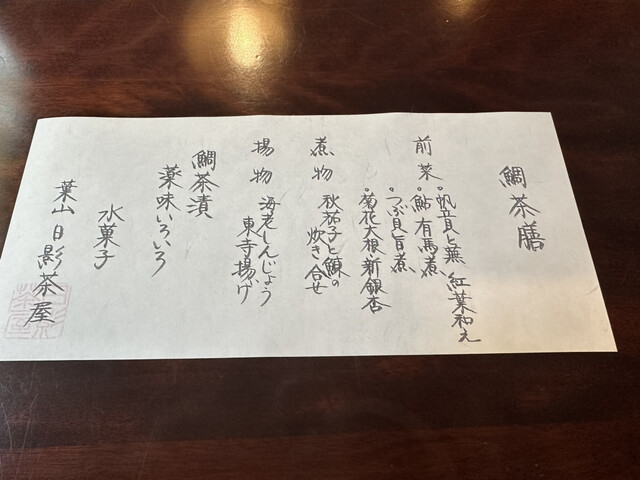 鯛茶膳
前菜 ・帆立貝と蕪 紅葉和え
・鮎有馬煮
・つぶ貝旨煮
・菊花大根・新銀杏
煮物 秋茄子と鰊の
炊き合せ
揚物 海老しんじょう
東寺揚げ
鯛茶漬
薬味いろいろ
水菓子
葉山日影茶屋